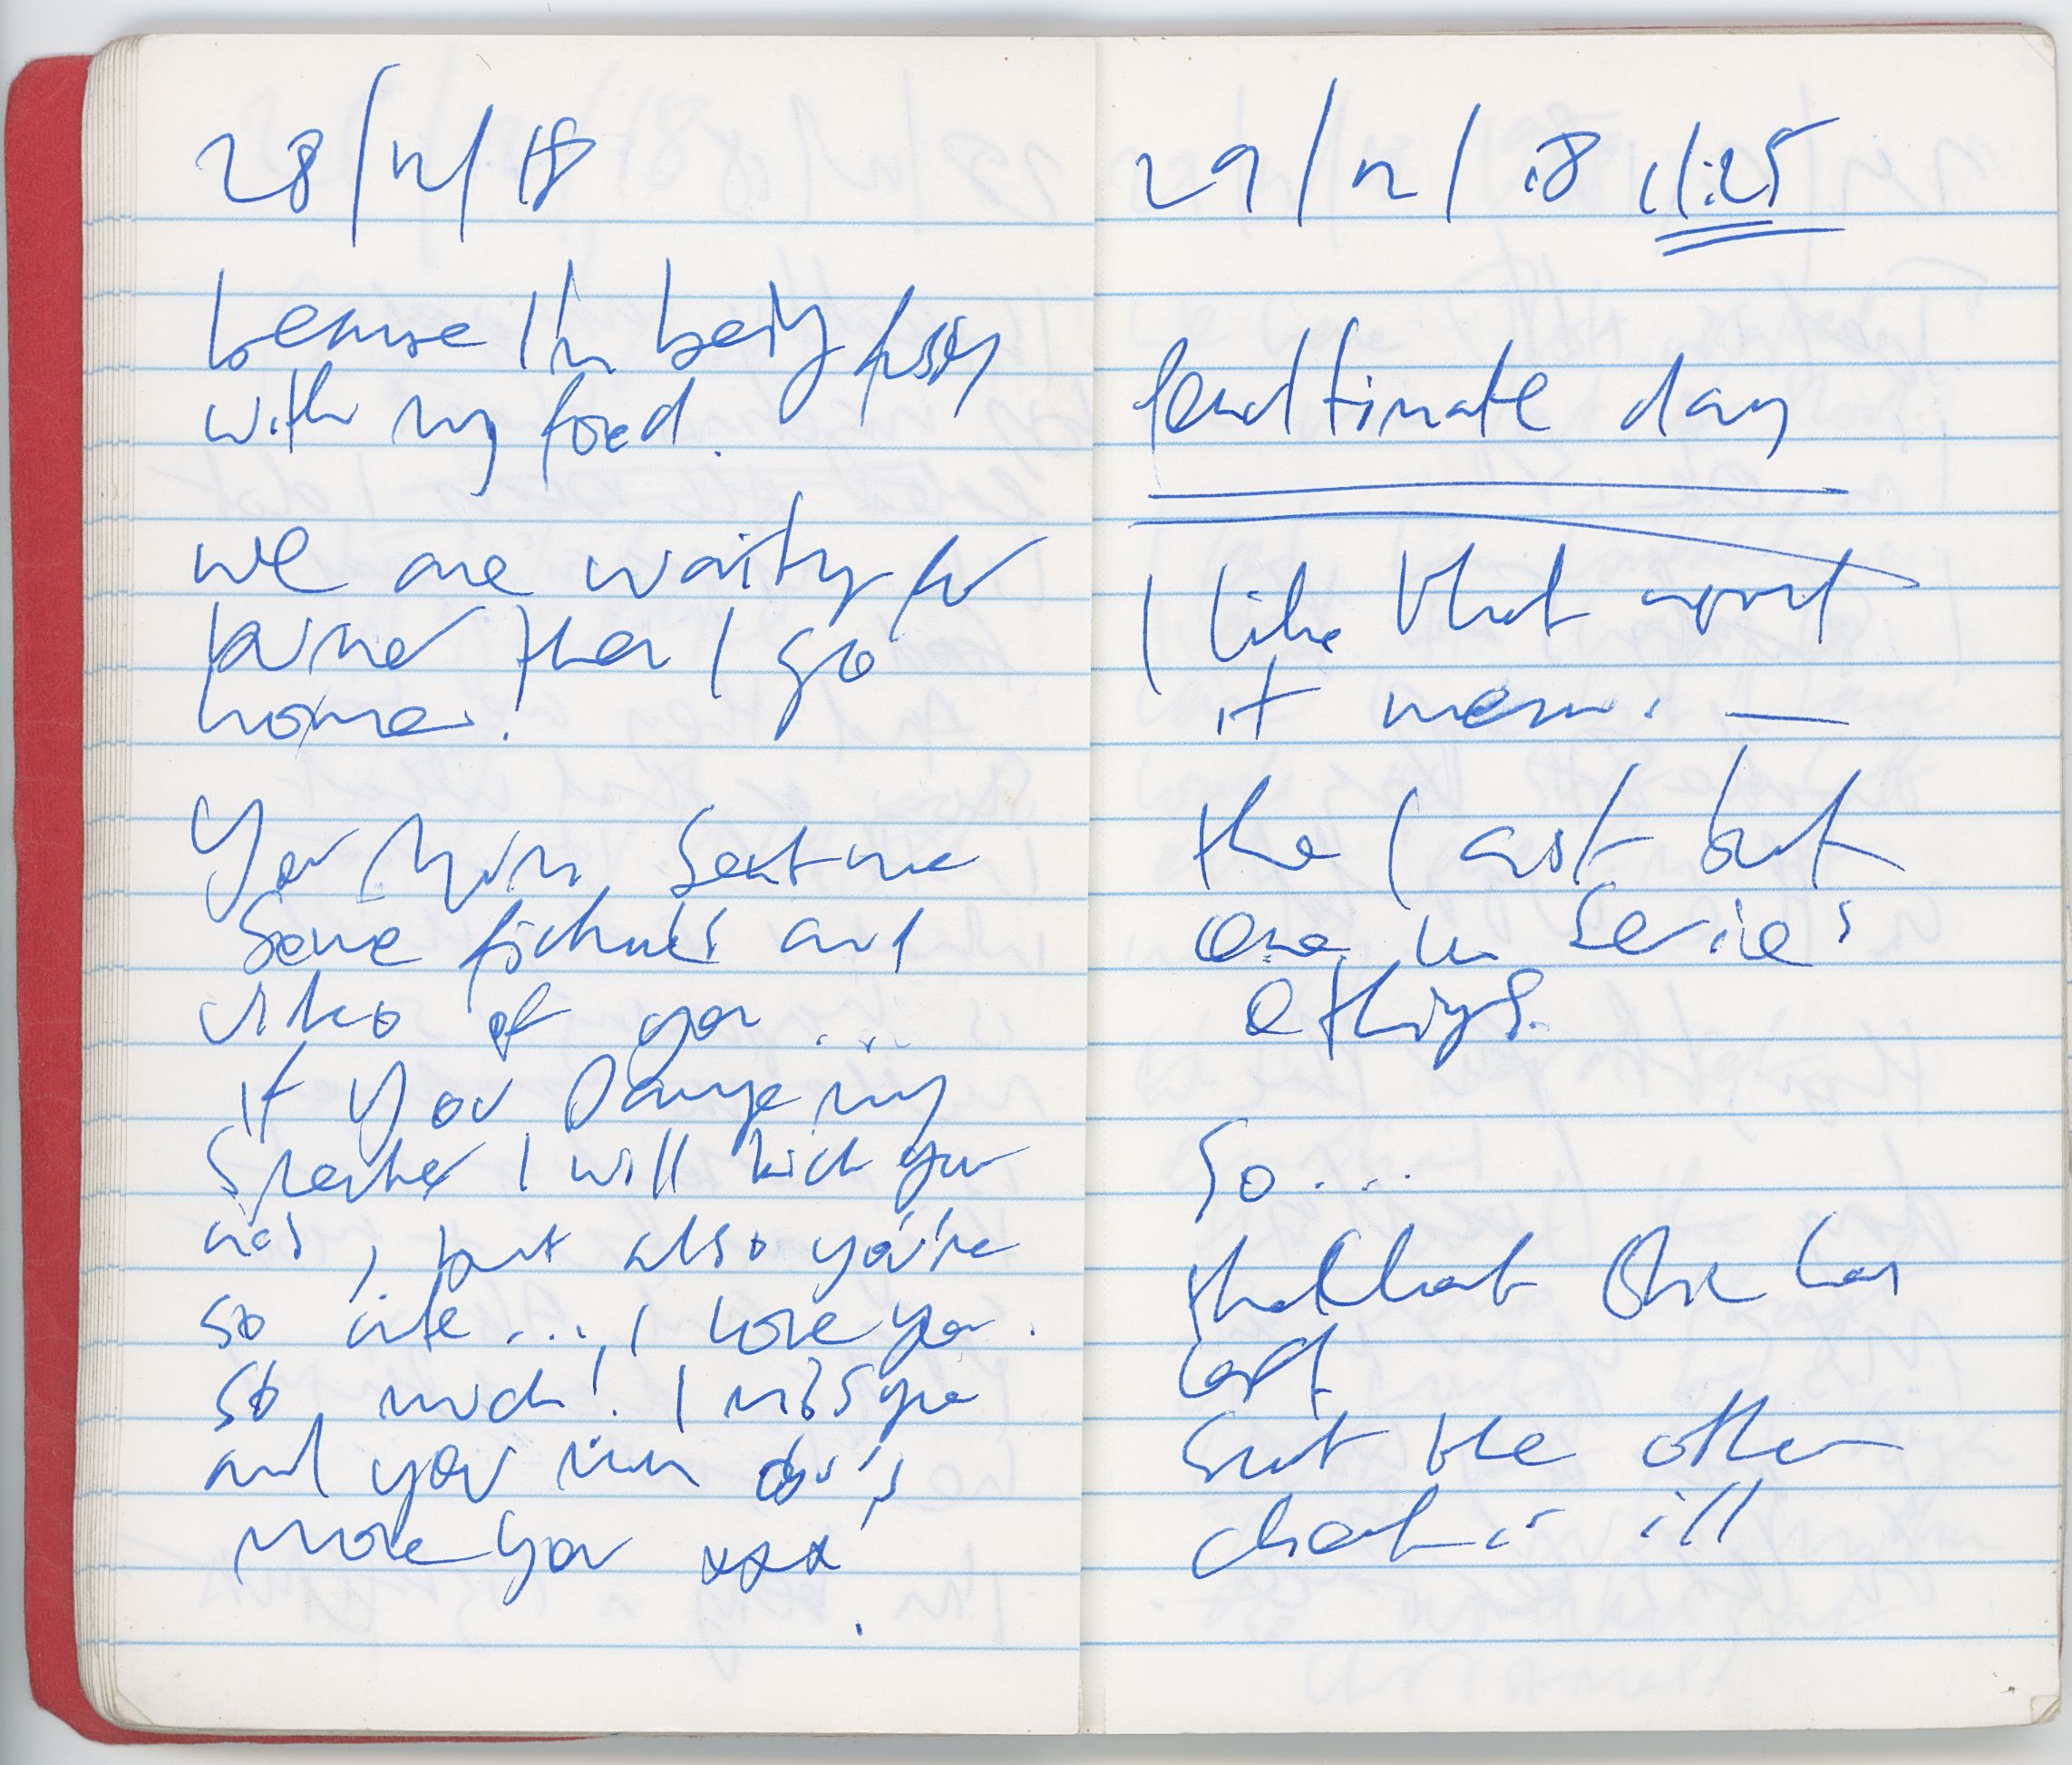 28/12/18
because I'm being fussy
with my food.
we are waiting for
then I go
home!
Your Mum sent me
some pictures and
video of you ...
If you Damage my
Speaker I will kick your
ass, but also you're
so cute ... I love you
so much! I miss you
and your mum
more you xxx
29/12/18 11:25
Penultimate day
I like that word
it means: —
the last but
one in series
of things.
So ....
the one has
left
but the other
is ill